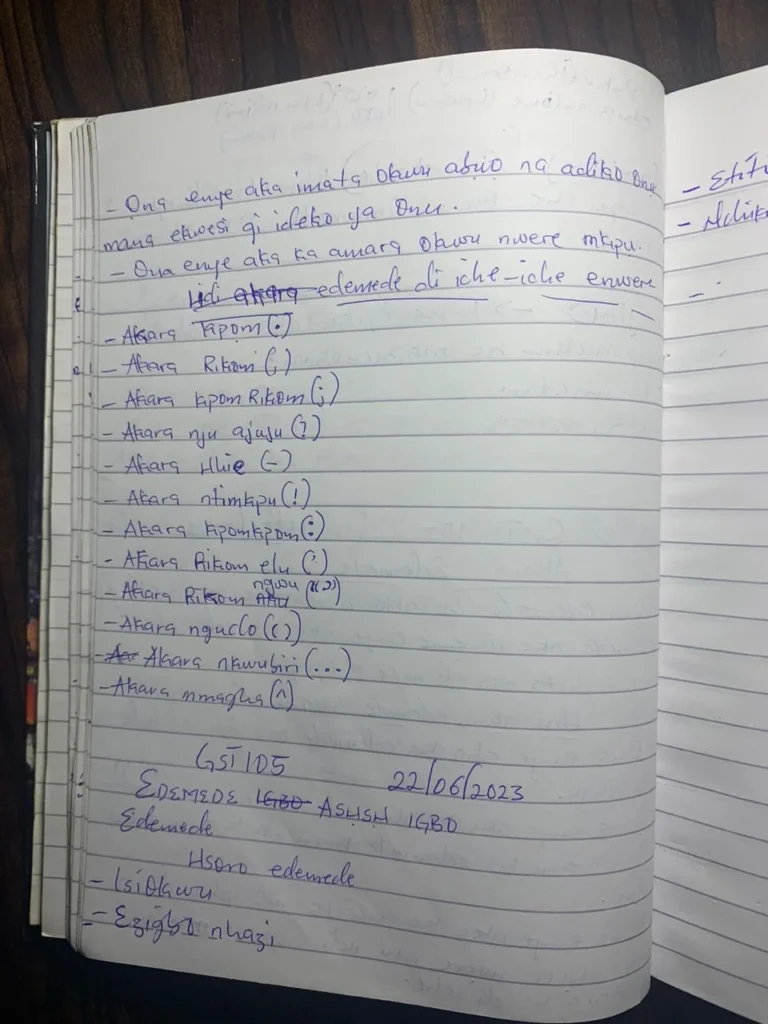 - Ona enye aka imata Okwu abuo na adiko Onu
mana ekwesi gi ideko ya Onu.
- Ona enye aka ka amara Okwu nwere mkpu.
Udi akara edemede di iche-iche enwere
- Akara Kpom (.)
- Akara Rikom (,)
- Akara Kpom Rikom (;)
- Akara nju ajuju (?)
- Akara Uhie (-)
- Akara ntimkpu (!)
- Akara Kpomkpom (:)
- Akara Rikom elu (')
- Akara Rikom ngwu ("")
- Akara ngudo ( )
- Akara nkwubiri (...)
- Akara nmagha (^)
GST 105
22/06/2023
EDEMEDE IGBO ASUSU IGBO
Edemede
Usoro edemede
- Isi Okwu
- Ezigbo nhazi
- Etiti